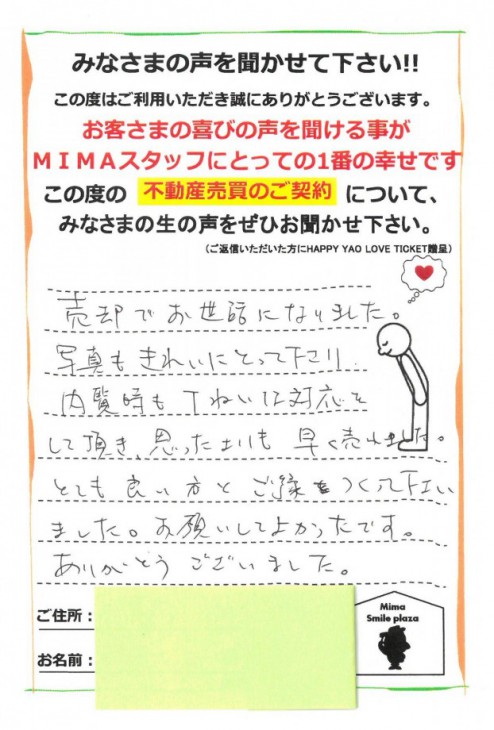 みなさまの声を聞かせて下さい!!
この度はご利用いただき誠にありがとうございます。
お客さまの喜びの声を聞ける事が
MIMAスタッフにとっての1番の幸せです
この度の 不動産売買のご契約 について、
みなさまの生の声をぜひお聞かせ下さい。
(ご返信いただいた方にHAPPY YAO LOVE TICKET贈呈)
売却でお世話になりました。
写真もきれいにとって下さり、
内覧時もていねいな対応を
して頂き、思ったよりも早く売れました。
とても良い方とご縁をつくって下さい
ました。お願いしてよかったです。
ありがとうございました。
ご住所:
お名前:
Mima
Smile plaza